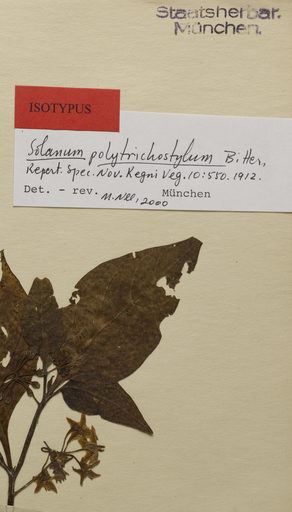 Staatsherbar.
München.
ISOTYPUS
Solanum polytrichostylum Bitter,
Repert. Spec. Nov. Regni Veg. 10:550. 1912.
Det. - rev. M. Nee, 2000 München